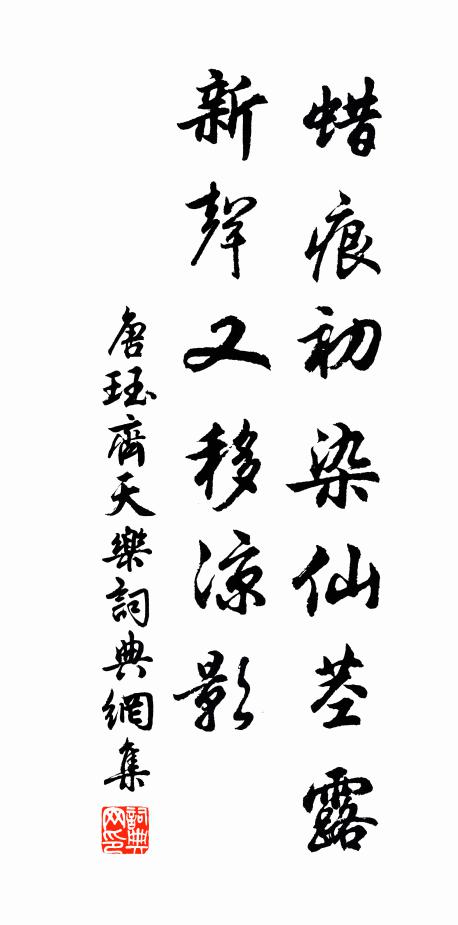 蜡痕初染仙茎露
新聲又移涼影
唐珏齊天樂詞典網集
詞典
网印